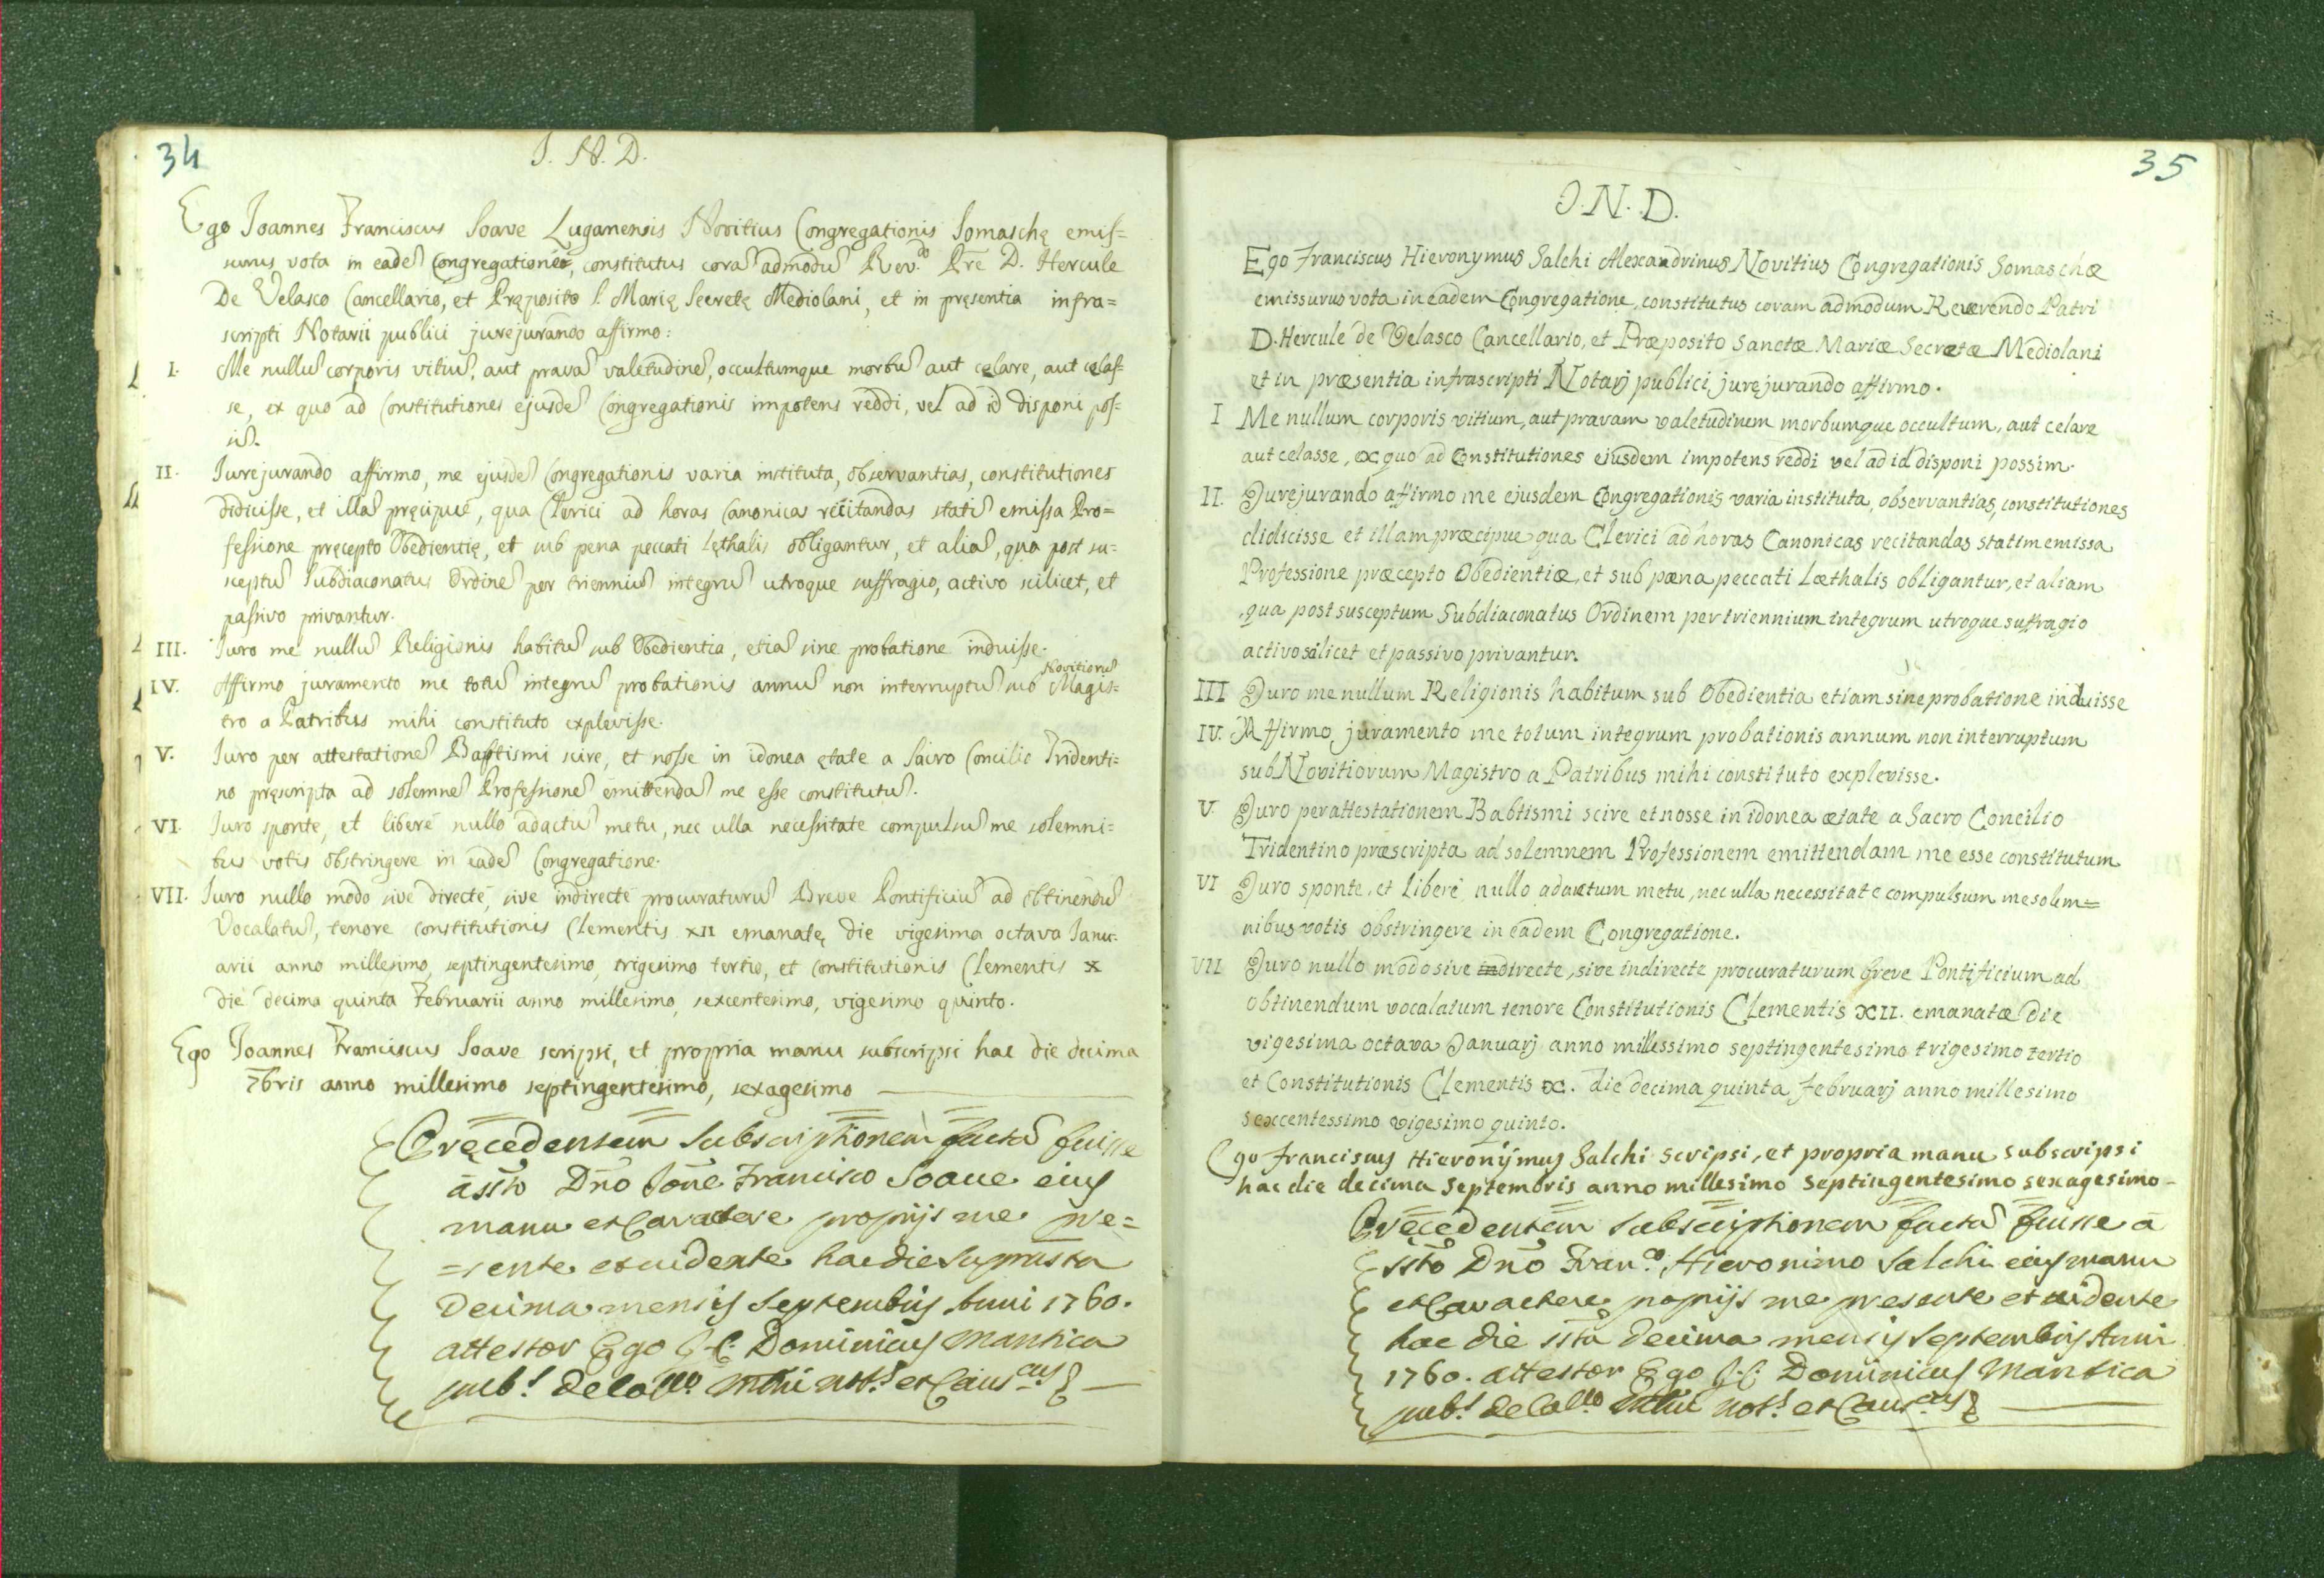 34
J. N. D.
Ego Joannes Franciscus Soave Luganensis Novitius Congregationis Somaschę emis=
surus vota in eadē Congregatione, constitutus corā admodū Rev.do Prē D. Hercule
De Velasco Cancellario, et Pręposito S. Marię Secretę Mediolani, et in pręsentia infra=
scripti Notarii publici jurejurando affirmo:
I. Me nullū corporis vitiū, aut pravā valetudinē, occultumque morbū aut celare, aut celas=
se, ex quo ad Constitutiones ejusdē Congregationis impotens reddi, vel ad id disponi pos=
sī.
II. Jurejurando affirmo, me ejusdē Congregationis varia instituta, observantias, constitutiones
didicisse, et illā pręcipuè, qua Clerici ad horas Canonicas recitandas statī emissa Pro=
fessione pręcepto Obedientię, et sub pena peccati lęthalis obligantur, et aliā, qua post su=
sceptū Subdiaconatus Ordinē per trienniū integrū utroque suffragio, activo scilicet, et
passivo privantur.
III. Juro me nullū Religionis habitū sub Obedientia, etiā sine probatione induisse.
Novitiorū
IV. Affirmo juramento me totū integrū probationis annū non interruptū sub Magis=
tro a Patribus mihi constituto explevisse.
V. Juro per attestationē Baptismi scire, et nosse in idonea ętate a Sacro Concilio Tridenti=
no pręscripta ad solemnē Professionē emittendā me esse constitutū.
VI. Juro sponte, et liberè nullo adactū metu, nec ulla necessitate compulsū me solemni=
bus votis obstringere in eadē Congregatione.
VII. Juro nullo modo sive directè, sive indirectè procuraturū Breve Pontificiū ad obtinendū
Vocalatū, tenore constitutionis Clementis XII emanatę die vigesima octava Janu=
arii anno millesimo, septingentesimo, trigesimo tertio, et Constitutionis Clementis X
die decima quinta Februarii anno millesimo, sexcentesimo, vigesimo quinto.
Ego Joannes Franciscus Soave scripsi, et propria manu subscripsi hac die decima
7bris anno millesimo septingentesimo, sexagesimo
Pręcedentem subscriptionem factā fuisse
à ssto Dno Jone Francisco Soave eius
manu et Caractere propriis me pre=
=sente et vidente hac die suprasta
Decima mensis Septembris Anni 1760.
attestor Ego J. C. Dominicus Mantica
pub.s de Collo Mlni not.s et Caus.cus
35
J. N. D.
Ego Franciscus Hieronymus Salchi Alexandrinus Novitius Congregationis Somaschæ
emissurus vota in eadem Congregatione, constitutus coram admodum Reverendo Patri
D. Hercule de Velasco Cancellario, et Præposito Sanctæ Mariæ Secretæ Mediolani
et in præsentia infrascripti Notarj publici jurejurando affirmo.
I Me nullum corporis vitium, aut pravam valetudinem morbumque occultum, aut celare
aut celasse, ex quo ad Constitutiones ejusdem impotens reddi vel ad id disponi possim.
II. Jurejurando affirmo me ejusdem Congregationis varia instituta, observantias, constitutiones
didicisse et illam præcipue qua Clerici ad horas Canonicas recitandas statim emissa
Professione præcepto Obedientiæ, et sub pæna peccati Læthalis obligantur, et aliam
qua post susceptum Subdiaconatus Ordinem per triennium integrum utroque suffragio
activo silicet et passivo privantur.
III Juro me nullum Religionis habitum sub Obedientia etiam sine probatione induisse
IV. Affirmo juramento me totum integrum probationis annum non interruptum
sub Novitiorum Magistro a Patribus mihi constituto explevisse.
V. Juro per attestationem Babtismi scire et nosse in idonea ætate a Sacro Concilio
Tridentino præscripta ad solemnem Professionem emittendam me esse constitutum
VI Juro sponte, et liberè nullo adactum metu, nec ulla necessitate compulsum me solem=
nibus votis obstringere in eadem Congregatione.
VII Juro nullo modo sive indirecte, sive indirecte procuraturum breve Pontificium ad
obtinendum vocalatum tenore Constitutionis Clementis XII. emanatæ die
vigesima octava Januarj anno millessimo septingentesimo trigesimo tertio
et Constitutionis Clementis X. die decima quinta Februarj anno millesimo
sexcentessimo vigesimo quinto.
Ego Franciscus Hieronijmus Salchi scripsi, et propria manu subscripsi
hac die decima Septembris anno millesimo septingentesimo sexagesimo-
Pręcedentem subscriptionem factā fuisse à
ssto Dno Fran.co Hieronimo Salchi eius manu
et Caractere propriis me presente et vidente
hac die ssta decima mensis Septembris Anni
1760. attestor Ego J. C. Dominicus Mantica
pub.s de Collo Mlni not.s et Caus.cus